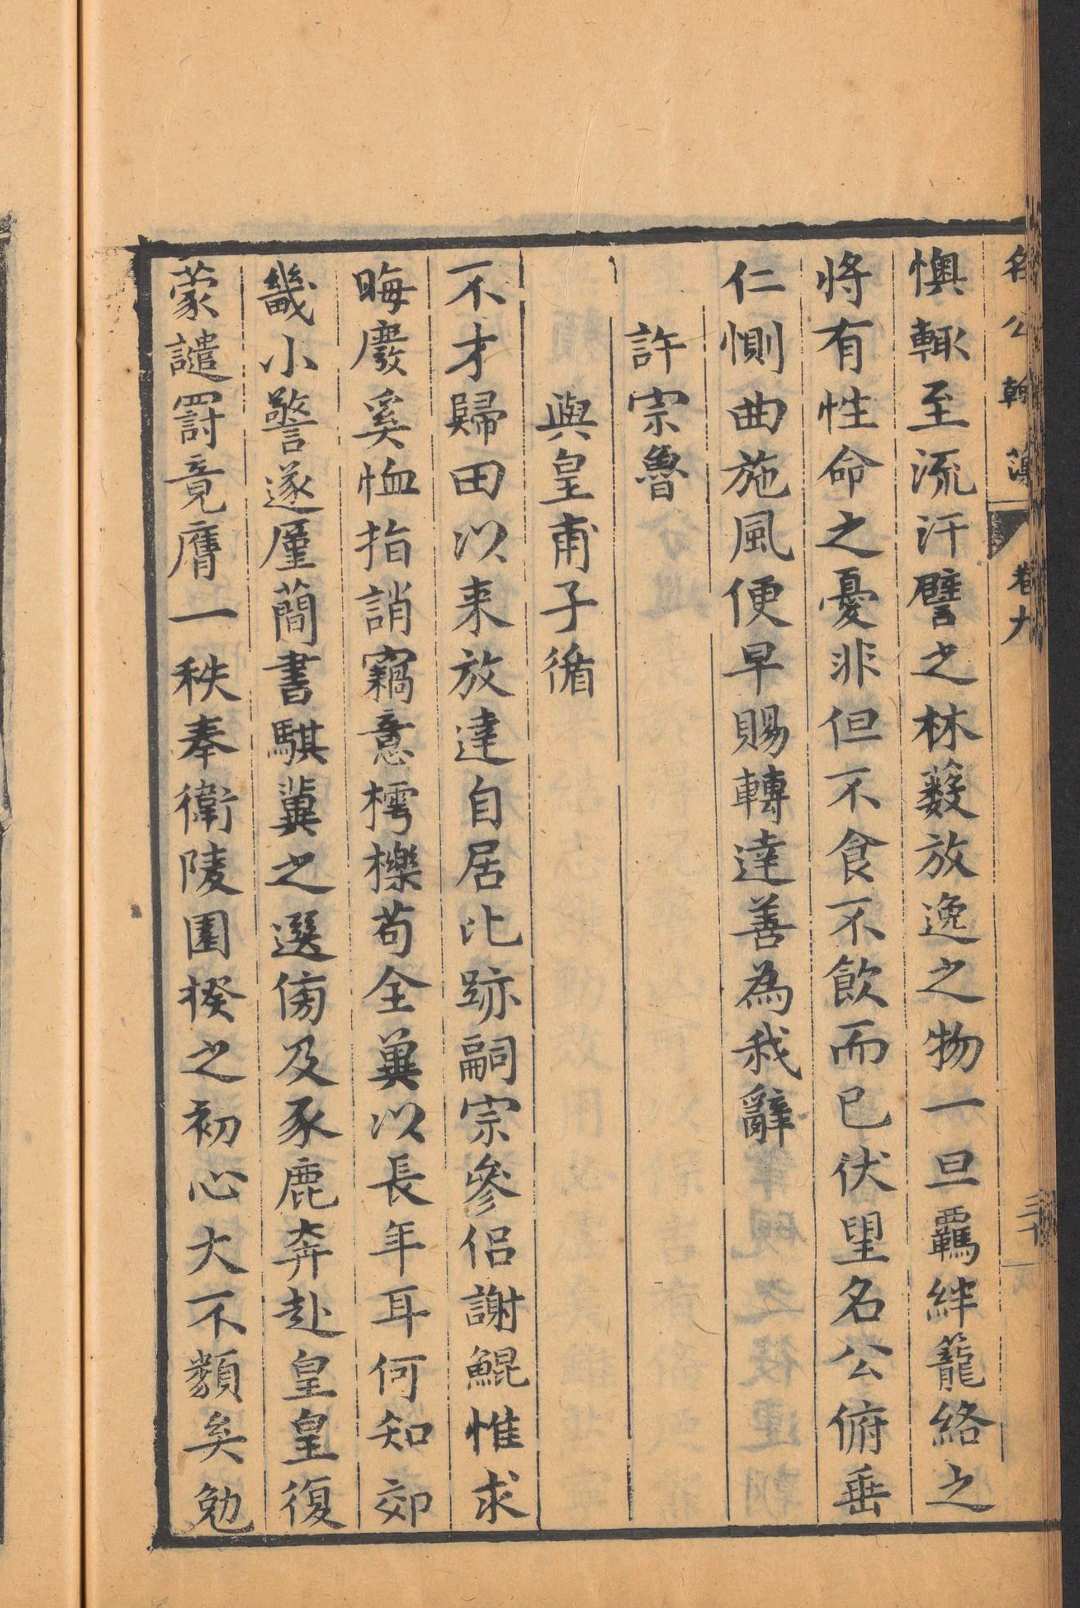 名公翰藻 卷九
懊輙至流汗譬之林薮放逸之物一旦羈絆籠絡之
將有性命之憂非但不食不飲而已伏望名公俯垂
仁惻曲施風便早賜轉達善為我辭
許宗魯
與皇甫子循
不才歸田以来放達自居比跡嗣宗參侣謝鯤惟求
晦廢奚恤指誚竊意樗櫟苟全兾以長年耳何知郊
畿小警遂厪簡書騏冀之選傍及豕鹿奔赴皇皇復
蒙譴罰竟膺一秩奉衛陵園揆之初心大不類矣勉